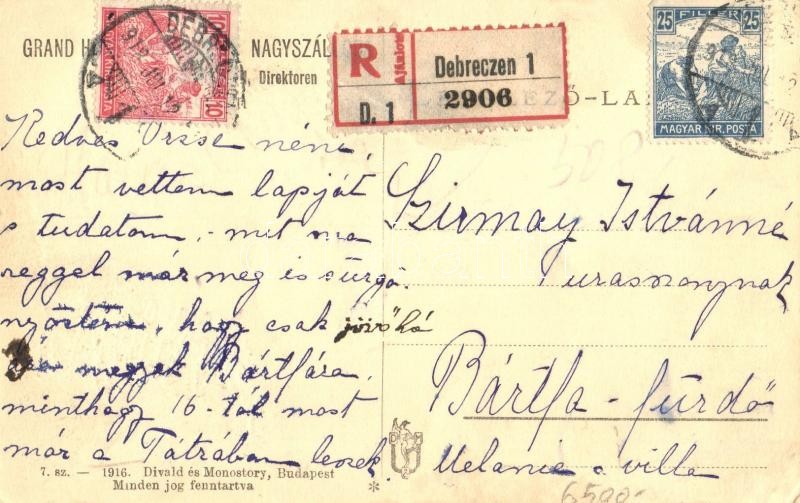 GRAND H NAGYSZÁL
Direktoren
R Ajánlott Debreczen 1
D. 1 2906
10
25 FILLÉR 25
MAGYAR KIR. POSTA
DEB
EZŐ-LA
Kedves Orsse néni,
most vettem lapját
s tudatom, mit ma
reggel már meg is sürgö-
nyöztem, hogy csak jövő hó
megyek Bártfára,
minthogy 16-tól most
már a Tátrában leszek
Szirmay Istvánné
urasszonynak
Bártfa-fürdő
Melanie villa
7. sz. — 1916. Divald és Monostory, Budapest
Minden jog fenntartva
6500-